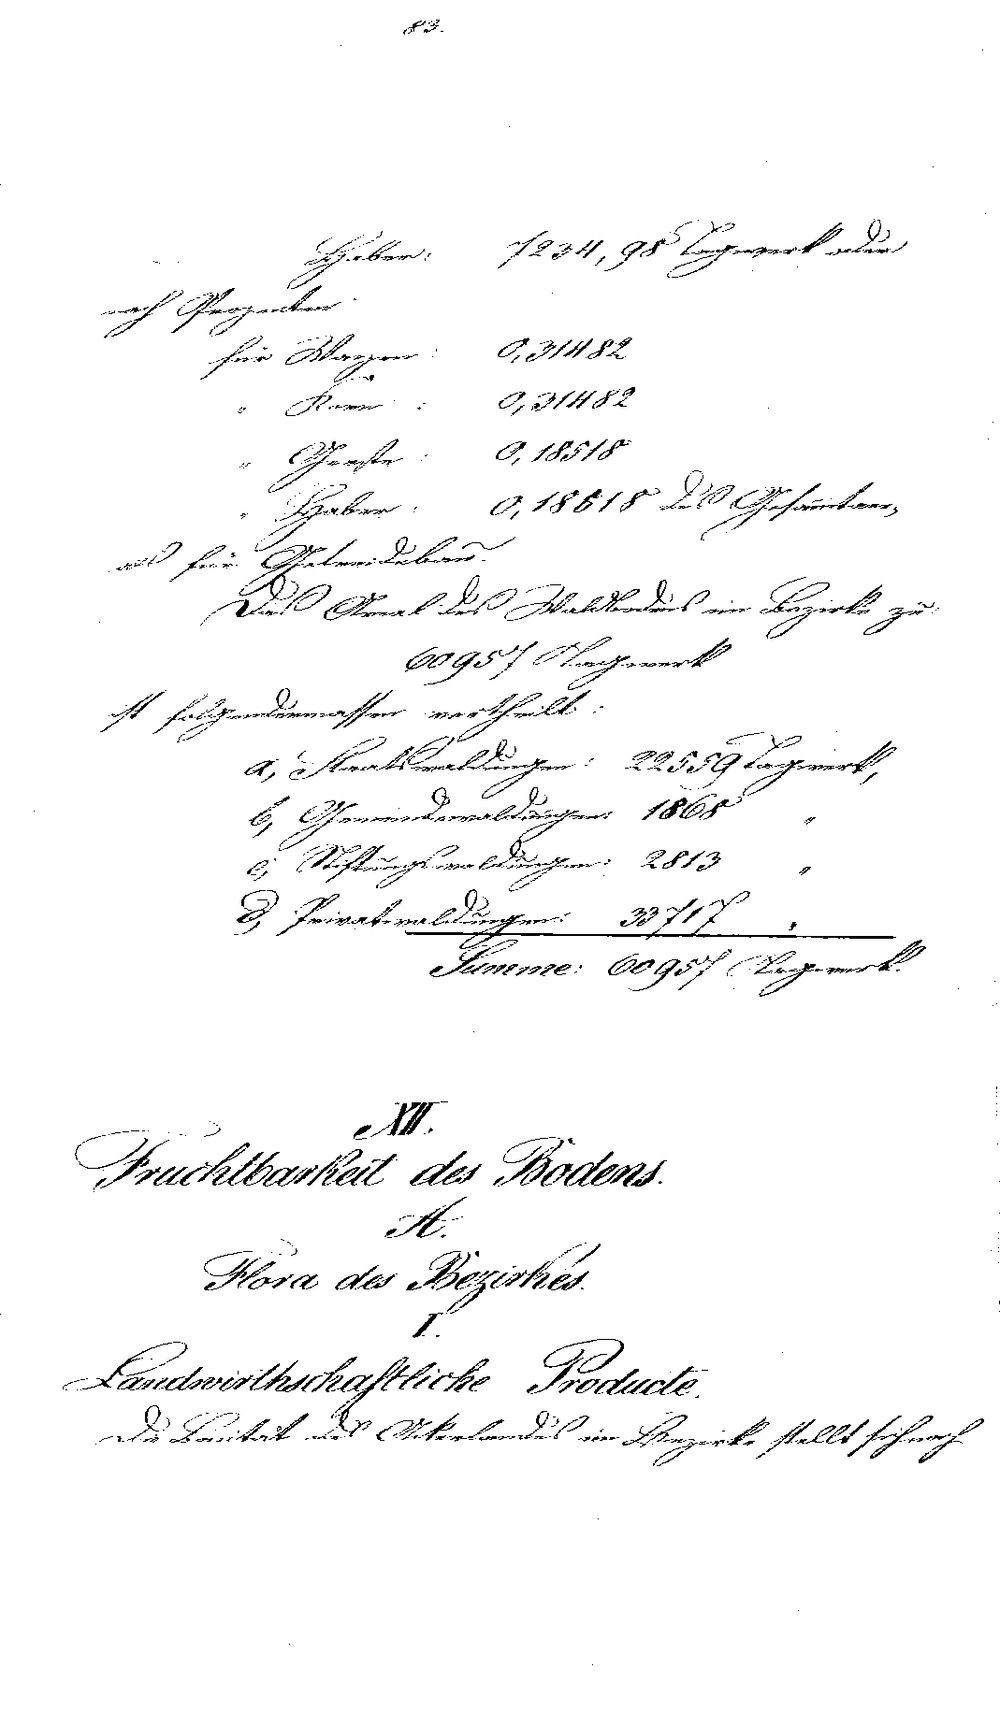 83.
Haber: 7234,98 Tagwerk oder
nach Prozenten
für Waizen: 0,31482
" Korn : 0,31482
" Gerste : 0,18518
" Haber : 0,18518 des Gesamtare,
als für Getreidebau.
Das Areal des Waldbodens im Bezirke zu:
60957 Tagwerk
ist folgendermassen vertheilt:
a, Staatswaldungen: 22559 Tagwerk,
b, Gemeindewaldungen: 1868 "
c, Stiftungswaldungen: 2813 "
d, Privatwaldungen: 33717 "
Summe: 60957 Tagwerk.
XII.
Fruchtbarkeit des Bodens.
A.
Flora des Bezirkes.
I.
Landwirthschaftliche Producte.
Die Bonität des Ackerlandes im Bezirke stellt sich nach